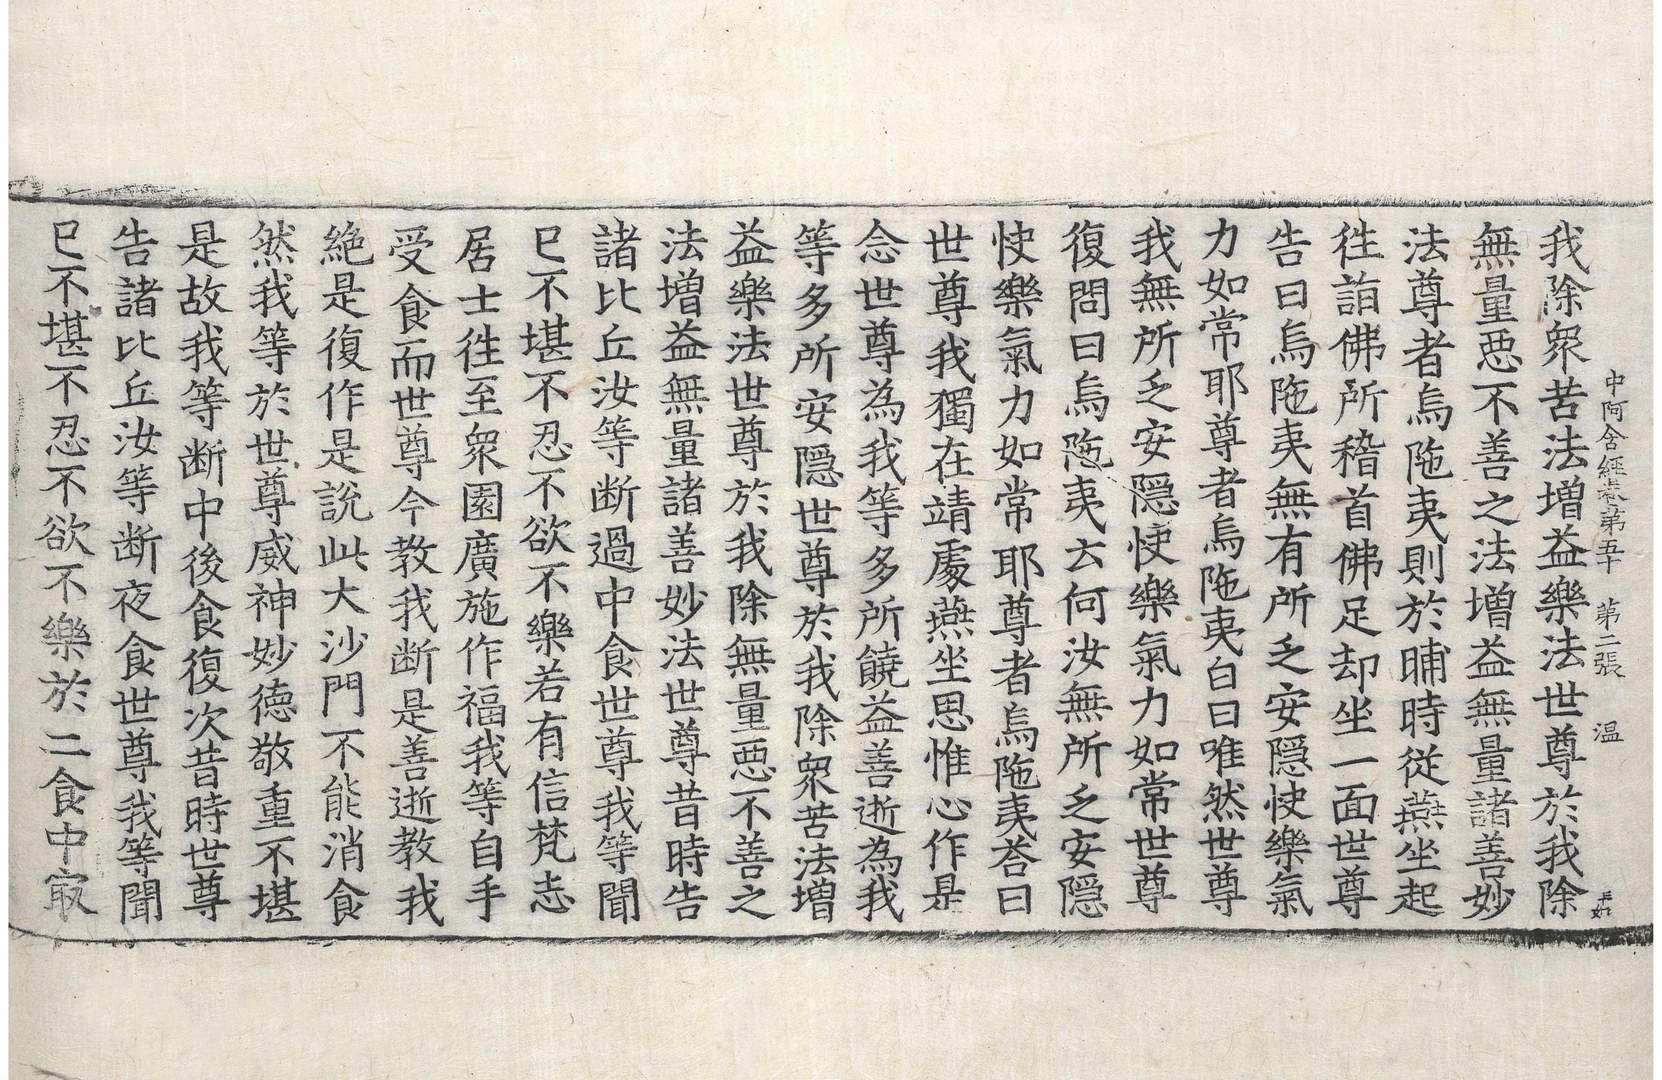 中阿含經卷第五十　第二張　温
我除衆苦法增益樂法世尊於我除
無量惡不善之法增益無量諸善妙
法尊者烏陁夷則於晡時從燕坐起
往詣佛所稽首佛足却坐一面世尊
告曰烏陁夷無有所乏安隱快樂氣
力如常耶尊者烏陁夷白曰唯然世尊
我無所乏安隱快樂氣力如常世尊
復問曰烏陁夷云何汝無所乏安隱
快樂氣力如常耶尊者烏陁夷荅曰
世尊我獨在靖處燕坐思惟心作是
念世尊為我等多所饒益善逝為我
等多所安隱世尊於我除衆苦法增
益樂法世尊於我除無量惡不善之
法增益無量諸善妙法世尊昔時告
諸比丘汝等断過中食世尊我等聞
已不堪不忍不欲不樂若有信梵志
居士往至衆園廣施作福我等自手
受食而世尊今教我断是善逝教我
絶是復作是說此大沙門不能消食
然我等於世尊威神妙德敬重不堪
是故我等断中後食復次昔時世尊
告諸比丘汝等断夜食世尊我等聞
已不堪不忍不欲不樂於二食中㝡